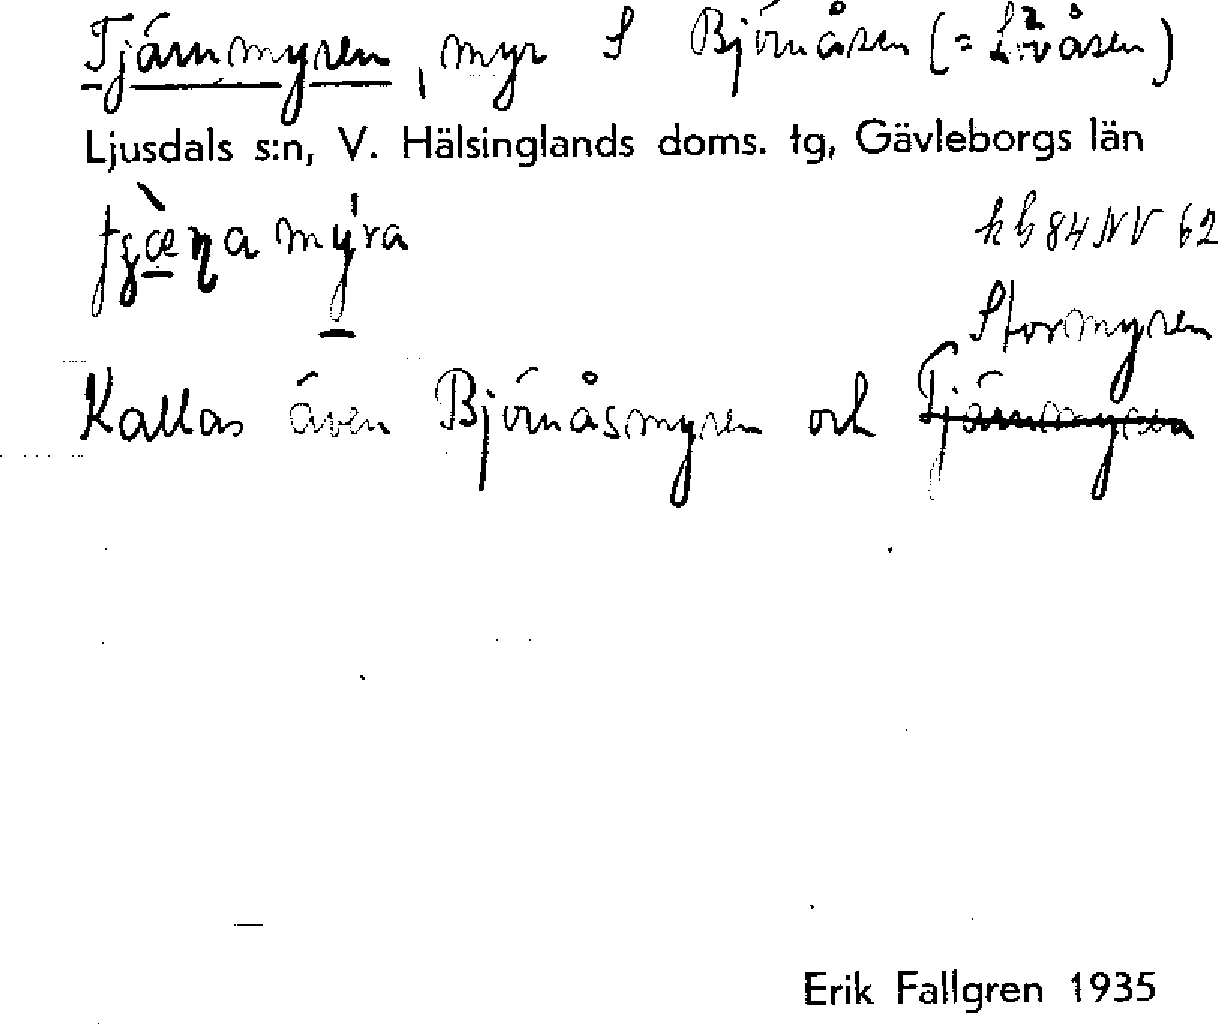 Tjärnmyren, myr S Björnåsen (= Lövåsen)
Ljusdals s:n, V. Hälsinglands doms. tg, Gävleborgs län
kb 84 NV 62
Stormyren
Kallas även Björnåsmyren och Tjärnmyren
Erik Fallgren 1935